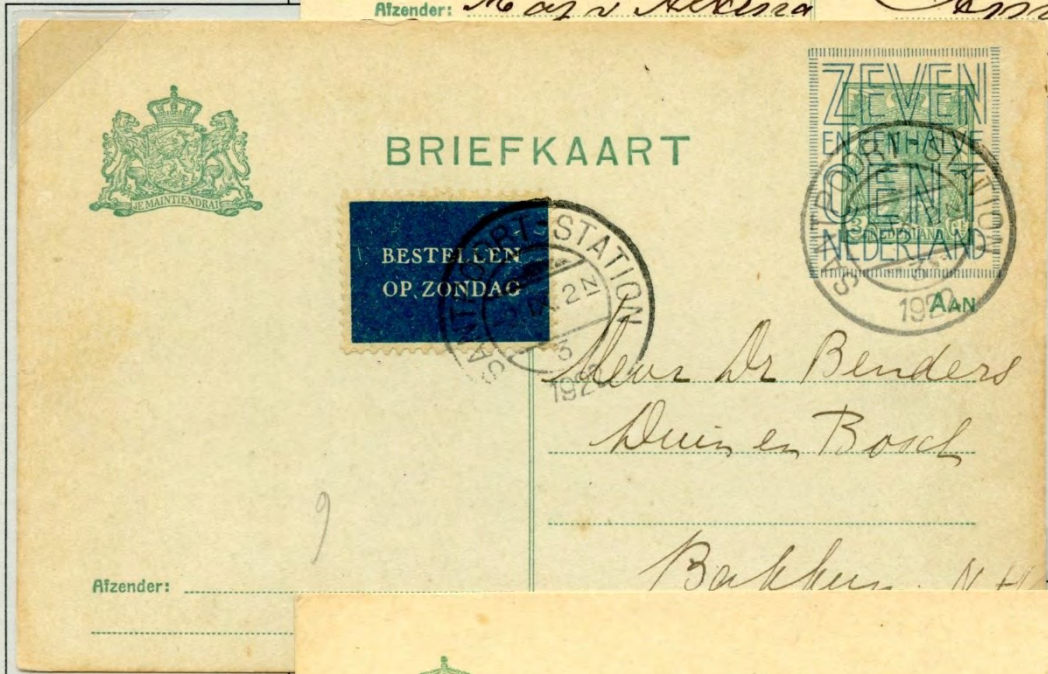 Afzender:
JE MAINTIENDRAI
BRIEFKAART
ZEVEN
EN EEN HALVE
CENT
NEDERLAND
BESTELLEN
OP ZONDAG
SANTPOORT-STATION
SANTPOORT-STATION
Aan
Dr Benders
Duin en Bosch
Bakkum N H
Afzender: